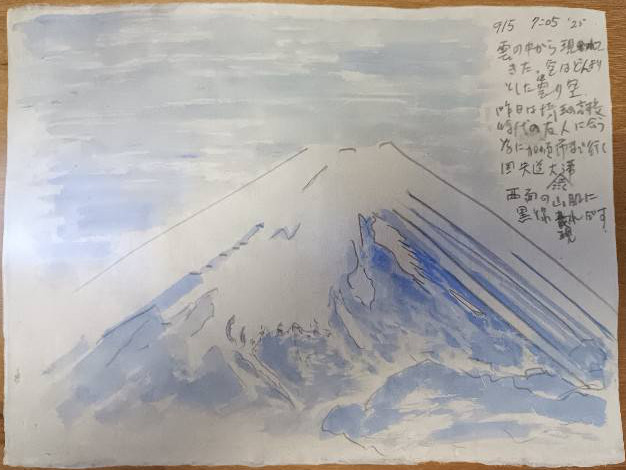 9/5 7:05 '21
雲の中から現れて
きた。空はどんより
とした曇り空
昨日は埼玉の高校
時代の友人に会う
為に加須市まで行く
国
大渋
西面の山肌に
黒い線
現れだす。